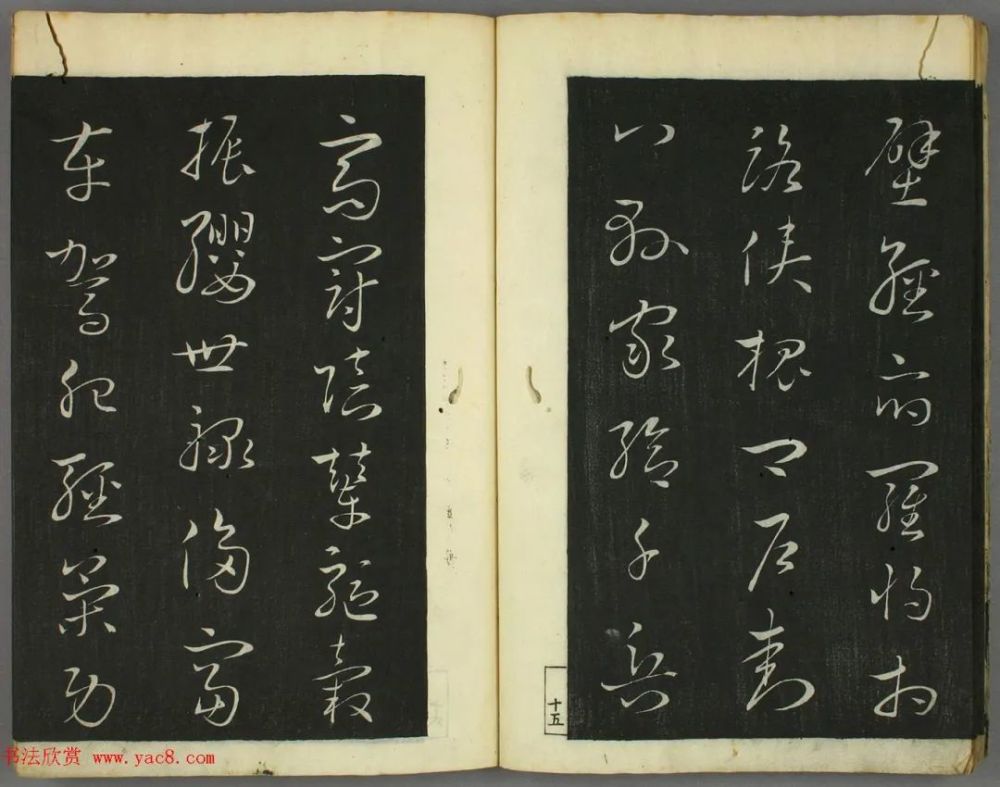 壁經府羅將相
路俠槐卿戶封
八縣家給千兵
高冠陪輦驅轂
振纓世祿侈富
車駕肥輕策功
十五
书法欣赏 www.yac8.com